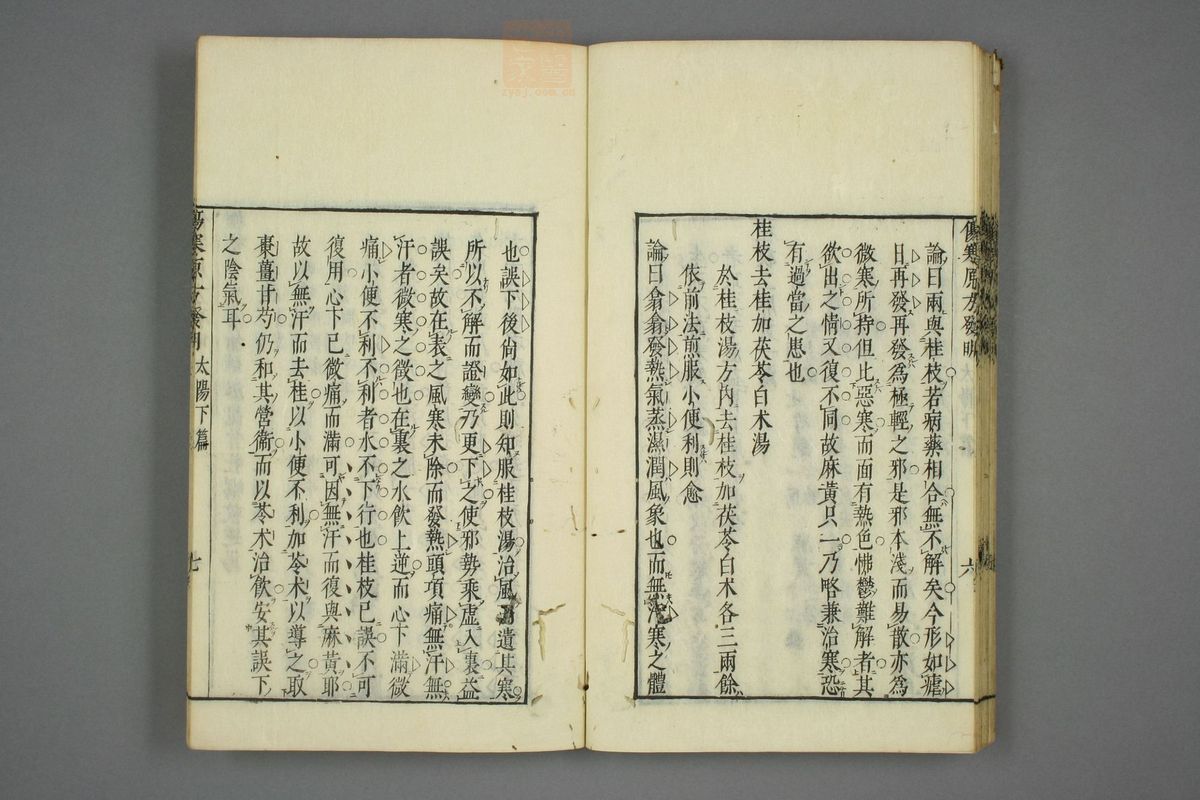 傷寒原方發明
六
論曰兩與桂枝若病藥相合無不解矣今形如瘧
日再發再發爲極輕之邪是邪本淺而易散亦爲
微寒所持但比惡寒而面有熱色怫鬱難解者其
欲出之情又復不同故麻黃只一乃略兼治寒恐
有過當之患也
桂枝去桂加茯苓白术湯
於桂枝湯方內去桂枝加茯苓白术各三兩餘
依前法煎服小便利則愈
論曰翕翕發熱氣蒸濕潤風象也而無汗寒之體
也誤下後尙如此則知服桂枝湯治風遺其寒
所以不解而證變乃更下之使邪勢乘虛入裏益
誤矣故在表之風寒未除而發熱頭項痛無汗無
汗者微寒之徵也在裏之水飮上逆而心下滿微
痛小便不利不利者水不下行也桂枝已誤不可
復用心下已微痛而滿可因無汗而復與麻黃耶
故以無汗而去桂以小便不利加苓术以導之取
棗薑甘芍仍和其營衞而以苓术治飮安其誤下
之陰氣耳
傷寒原方發明 太陽下篇
七
zysj.com.cn